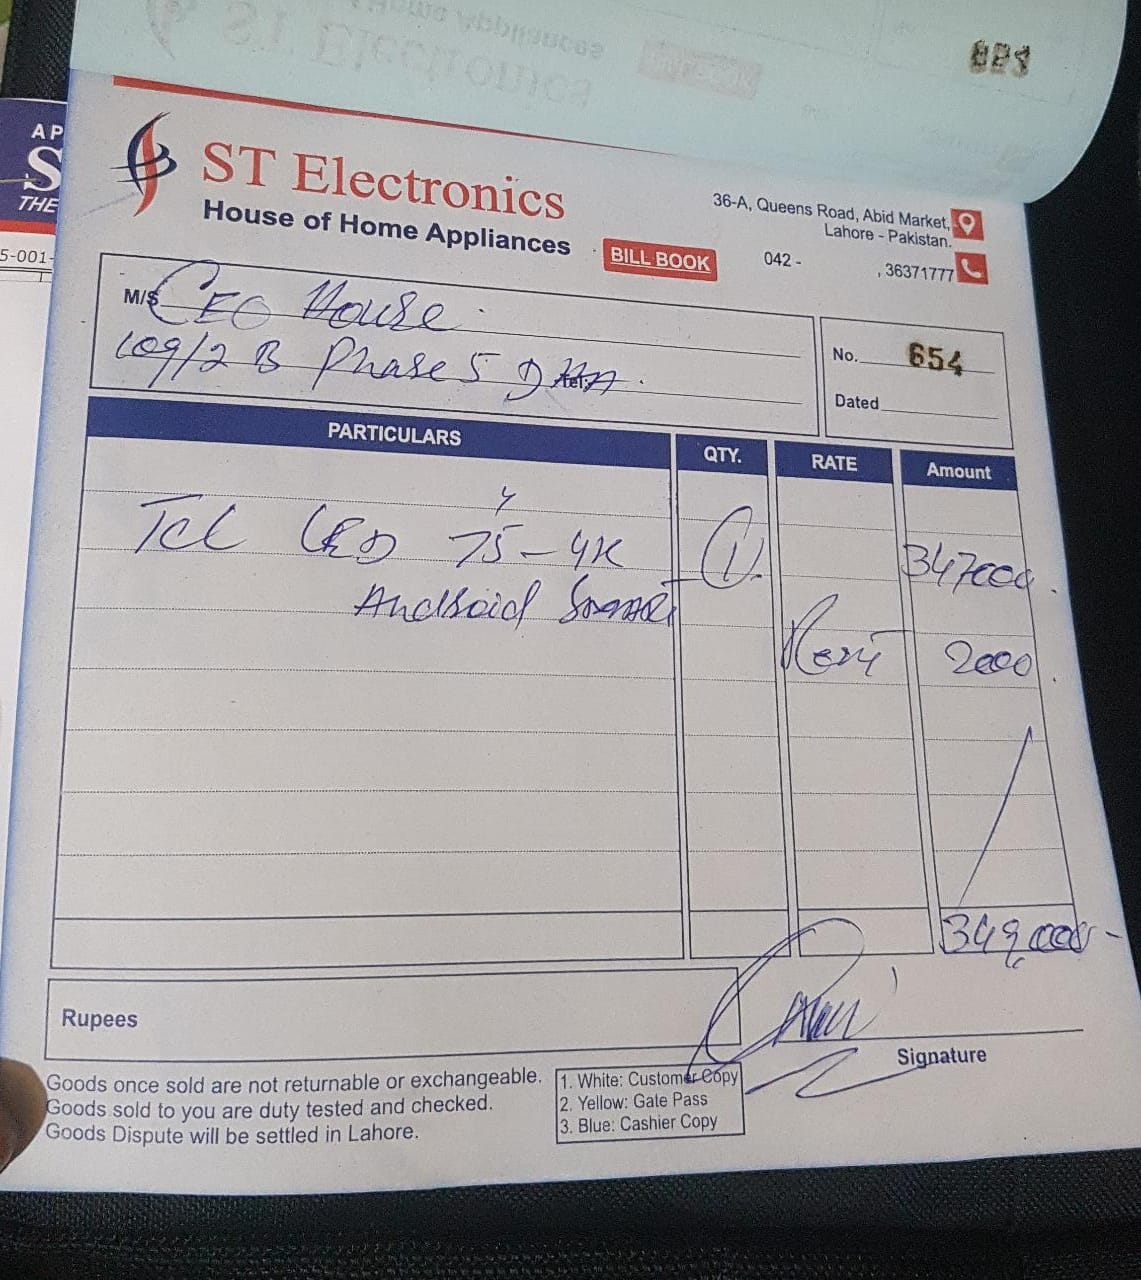 883
AP
S
THE
5-001-
ST Electronics
House of Home Appliances
BILL BOOK
36-A, Queens Road, Abid Market,
Lahore - Pakistan.
042 - , 36371777
M/S CEO House
109/2 B Phase 5 DHA
Tel:
No. 654
Dated
PARTICULARS QTY. RATE Amount
Tcl LED 75" - 4K 1 347000
Android Smart
Rent 2000
349,000/-
Rupees
Signature
Goods once sold are not returnable or exchangeable.
Goods sold to you are duty tested and checked.
Goods Dispute will be settled in Lahore.
1. White: Customer Copy
2. Yellow: Gate Pass
3. Blue: Cashier Copy